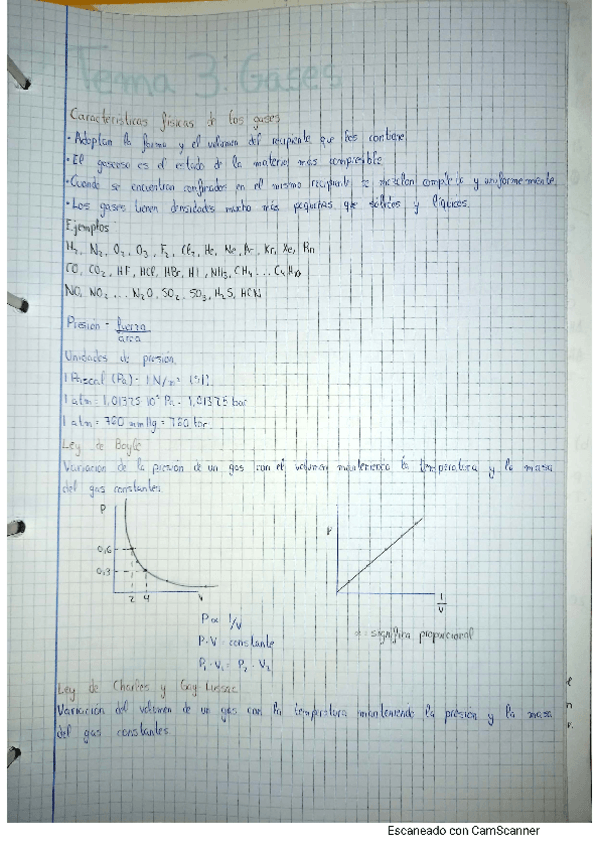 Tema 3: Gases
Características físicas de los gases
· Adoptan la forma y el volumen del recipiente que los contiene
· El gaseoso es el estado de la materia más compresible
· Cuando se encuentran confinados en el mismo recipiente se mezclan completa y uniformemente
· Los gases tienen densidades mucho más pequeñas que sólidos y líquidos.
Ejemplos
H₂, N₂, O₂, O₃, F₂, Cl₂, He, Ne, Ar, Kr, Xe, Rn
CO, CO₂, HF, HCl, HBr, HI, NH₃, CH₄ ... C₄H₁₀
NO, NO₂ ... N₂O, SO₂, SO₃, H₂S, HCN
Presión = fuerza
área
Unidades de presión
1 Pascal (Pa) = 1 N/m² (SI)
1 atm = 1,01325 10⁵ Pa = 1,01325 bar
1 atm = 760 mmHg = 760 torr
Ley de Boyle
Variación de la presión de un gas con el volumen manteniendo la temperatura y la masa
del gas constantes.
P
0,6
0,3
2 4
V
P
1
V
P ∝ 1/V
P·V = constante
P₁·V₁ = P₂·V₂
∝ = significa proporcional
Ley de Charles y Gay-Lussac
Variación del volumen de un gas con la temperatura manteniendo la presión y la masa
del gas constantes
Escaneado con CamScanner